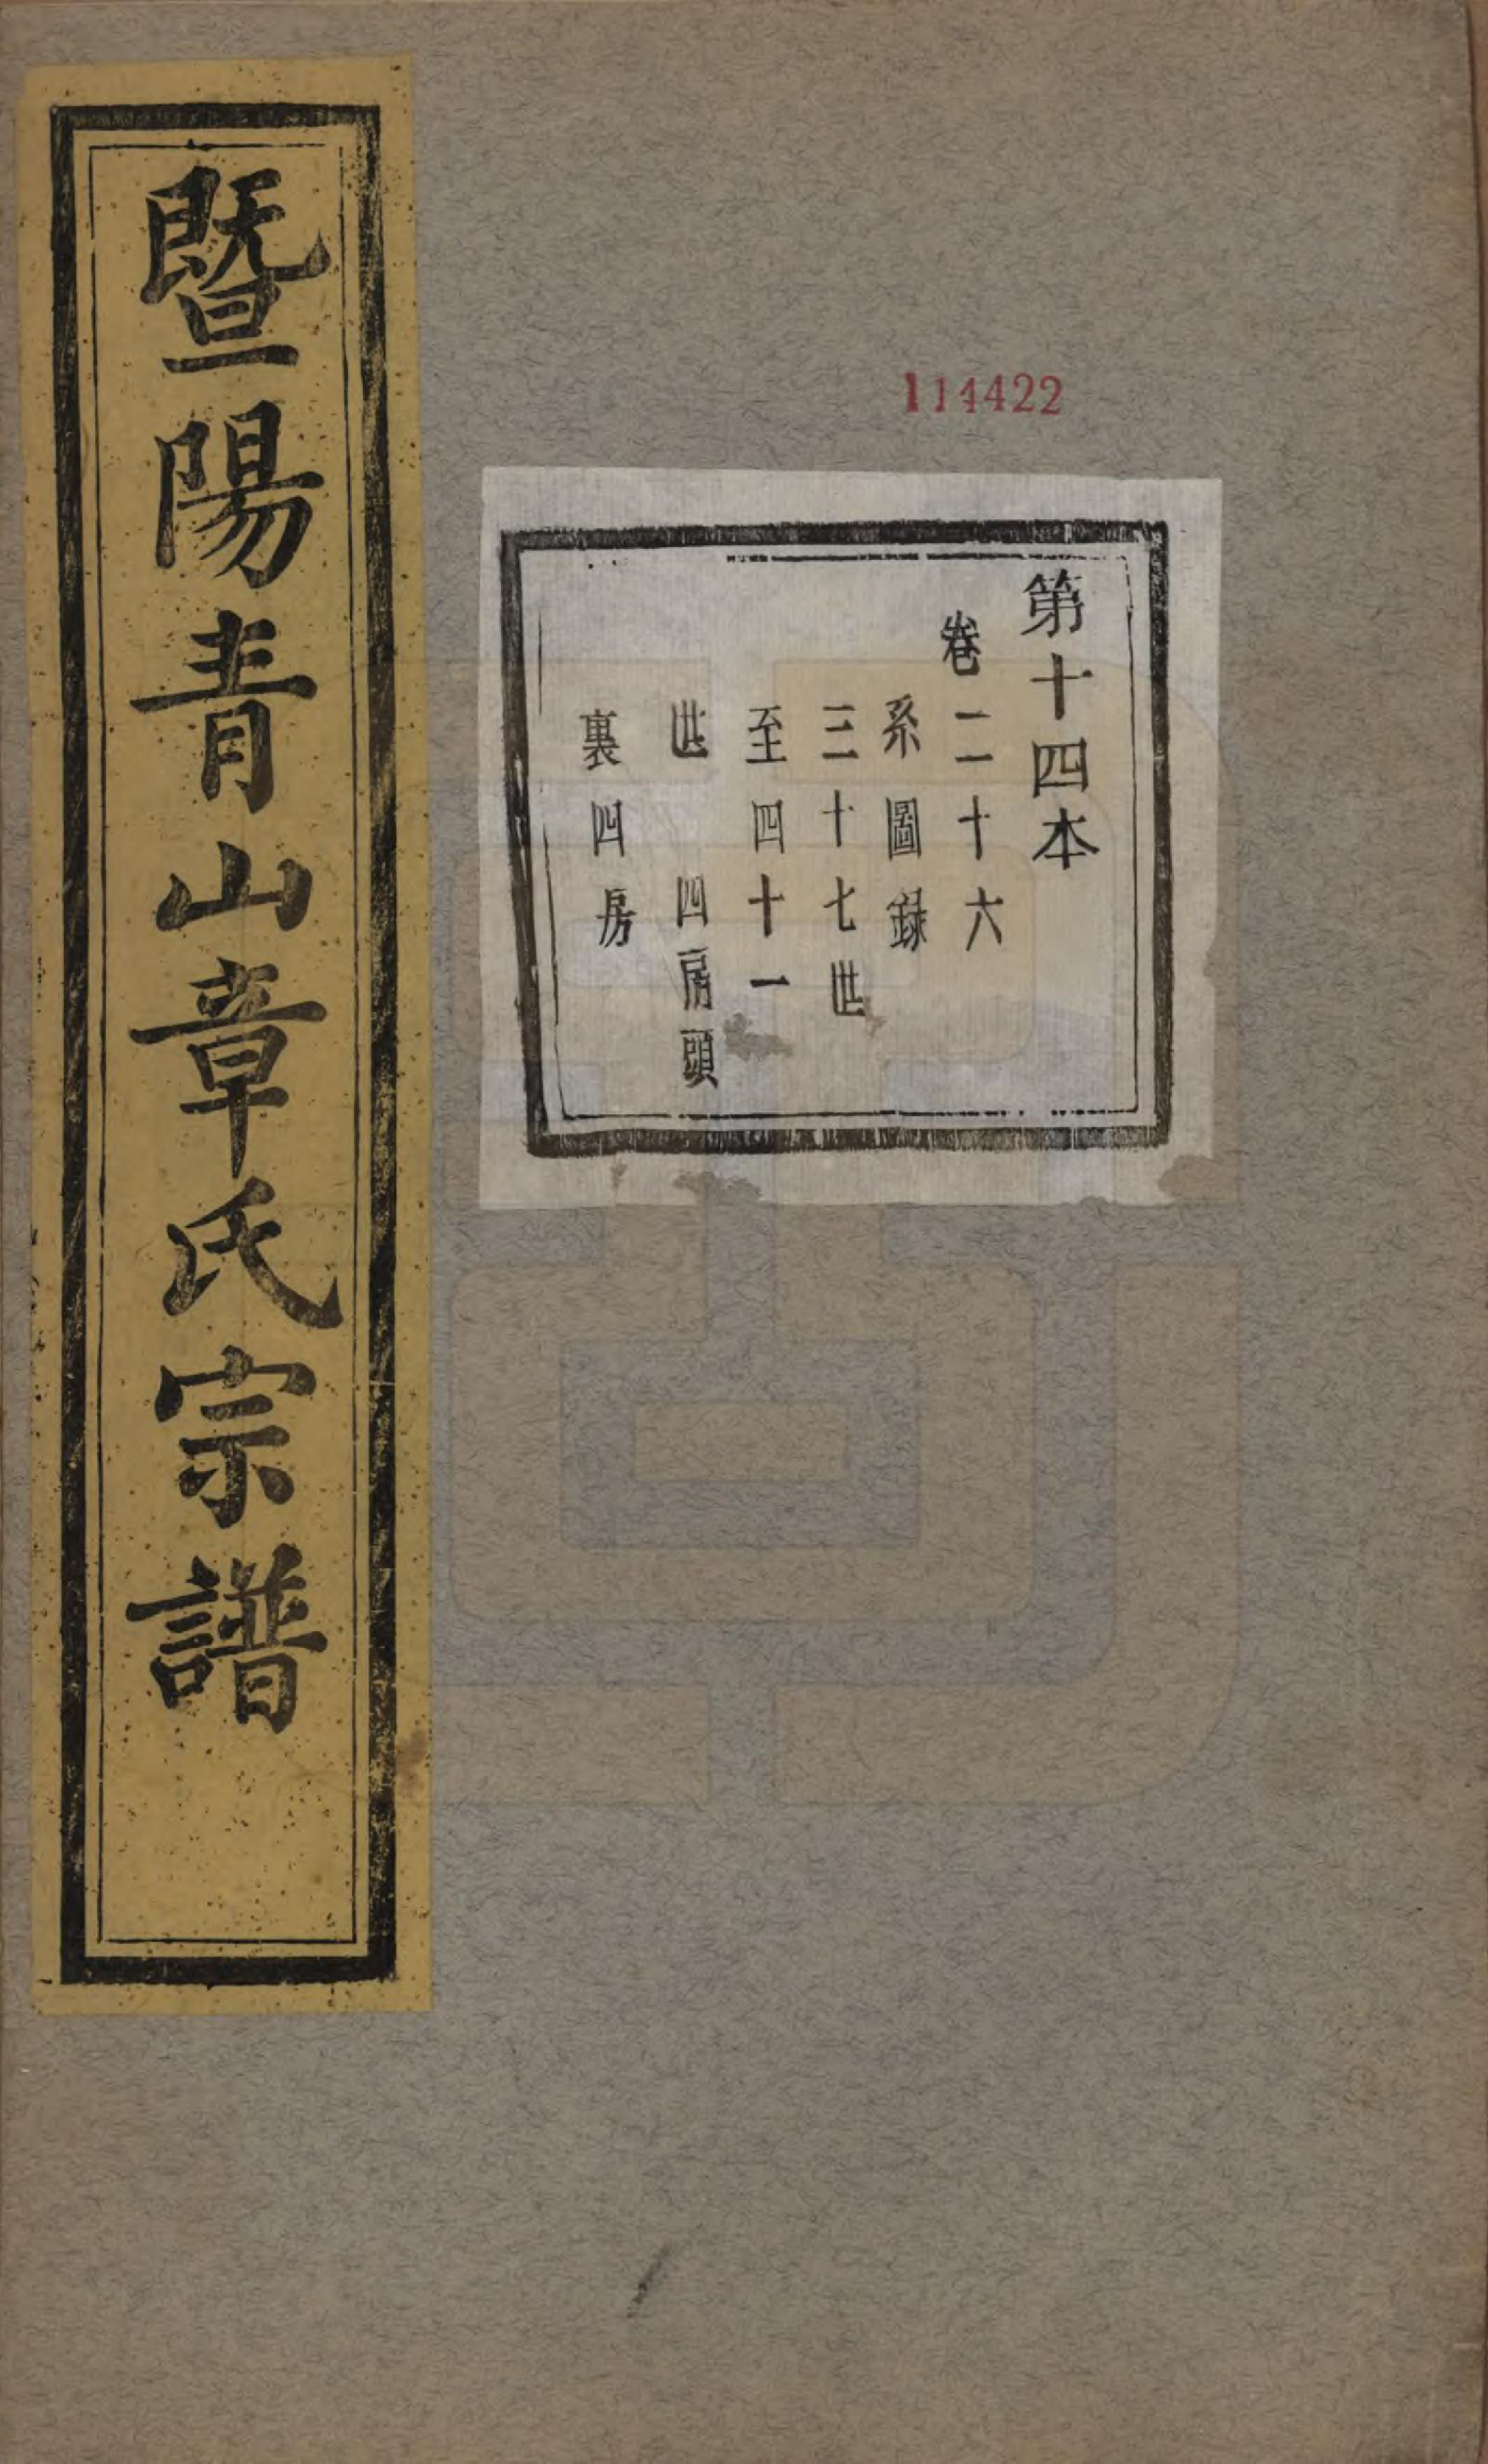 暨陽青山章氏宗譜
114422
第十四本
卷二十六
系圖錄
三十七世
至四十一
世　四房頭
裏四房